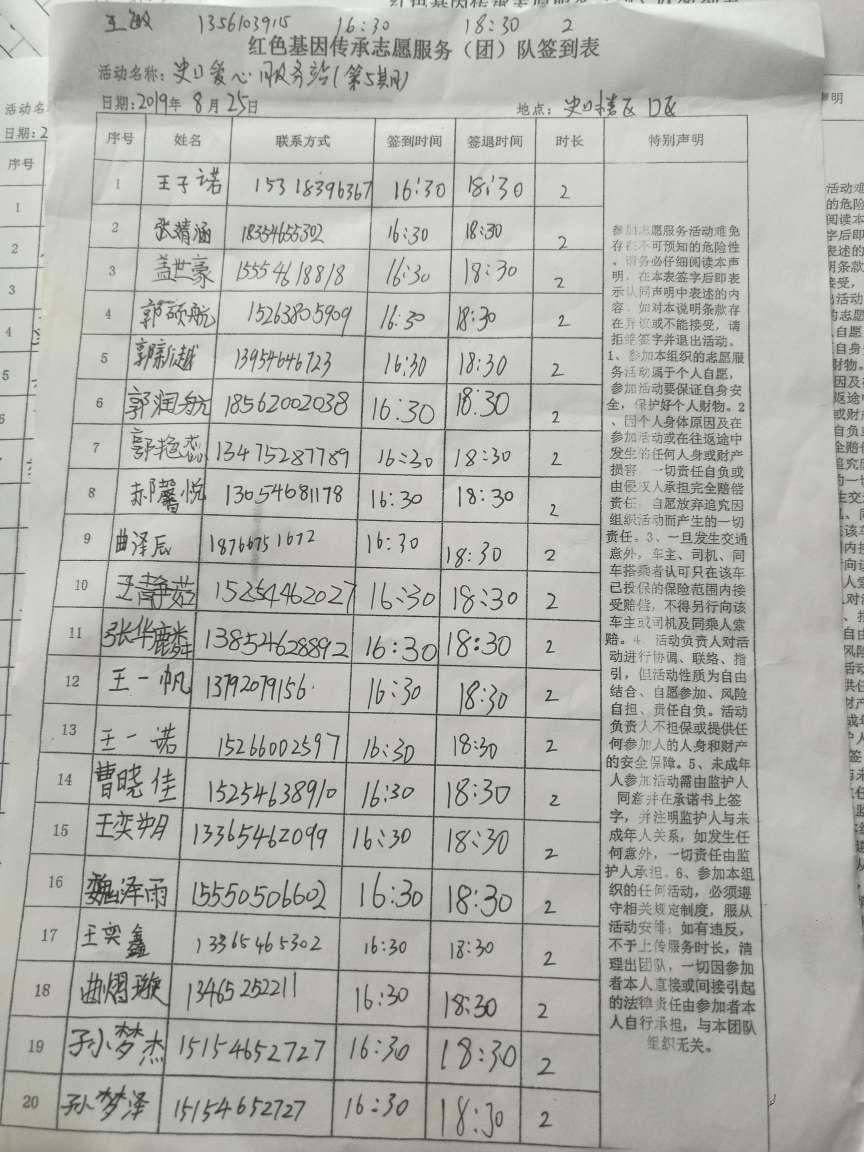 王敏 1356103915 16:30 18:30 2
红色基因传承志愿服务（团）队签到表
活动名称：史口爱心服务站（第5期）
日期：2019年 8月 25日 地点：史口楼区 D区
序号 姓名 联系方式 签到时间 签退时间 时长 特别声明
1 王子诺 15318396367 16:30 18:30 2
2 张靖涵 18354655302 16:30 18:30 2
3 盖世豪 15554618818 16:30 18:30 2
4 郭硕航 15263805909 16:30 18:30 2
5 郭新越 13954646723 16:30 18:30 2
6 郭润航 18562002038 16:30 18:30 2
7 郭艳蕊 13475287789 16:30 18:30 2
8 郝馨悦 13054681178 16:30 18:30 2
9 曲泽辰 18766751672 16:30 18:30 2
10 王静茹 15254462027 16:30 18:30 2
11 张华麟 13854628892 16:30 18:30 2
12 王一帆 13792079156 16:30 18:30 2
13 王一诺 15266002597 16:30 18:30 2
14 曹晓佳 15254638910 16:30 18:30 2
15 王奕玥 13365462099 16:30 18:30 2
16 魏泽雨 15550506602 16:30 18:30 2
17 王奕鑫 13365465302 16:30 18:30 2
18 曲熠璇 13465252211 16:30 18:30 2
19 孙梦杰 15154652727 16:30 18:30 2
20 孙梦泽 15154652727 16:30 18:30 2
参加志愿服务活动难免
存在不可预知的危险性
。请务必仔细阅读本声
明，在本表签字后即表
示认同声明中表述的内
容。如对本说明条款存
在异议或不能接受，请
拒绝签字并退出活动。
1、参加本组织的志愿服
务活动属于个人自愿，
参加活动要保证自身安
全，保护好个人财物。2
、因个人身体原因及在
参加活动或在往返途中
发生的任何人身或财产
损害，一切责任自负或
由侵权人承担完全赔偿
责任，自愿放弃追究因
组织活动而产生的一切
责任。3、一旦发生交通
意外，车主、司机、同
车搭乘者认可只在该车
已投保的保险范围内接
受赔偿，不得另行向该
车主或司机及同乘人索
赔。4、活动负责人对活
动进行协调、联络、指
引，但活动性质为自由
结合、自愿参加、风险
自担、责任自负。活动
负责人不担保或提供任
何参加人的人身和财产
的安全保障。5、未成年
人参加活动需由监护人
同意并在承诺书上签
字，并注明监护人与未
成年人关系，如发生任
何意外，一切责任由监
护人承担。6、参加本组
织的任何活动，必须遵
守相关规定制度，服从
活动安排；如有违反，
不予上传服务时长，清
理出团队，一切因参加
者本人直接或间接引起
的法律责任由参加者本
人自行承担，与本团队
组织无关。